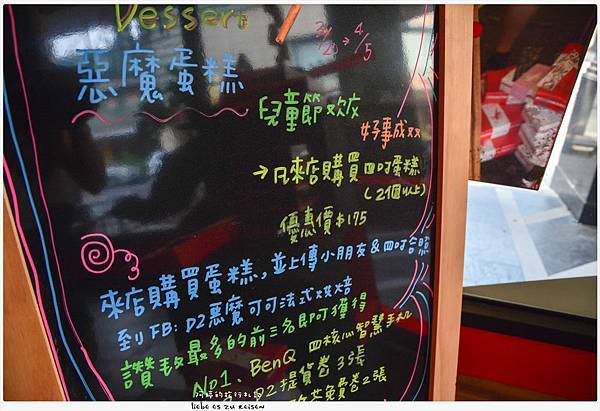 Dessert
3/20→4/5
惡魔蛋糕
兒童節欢欣
好事成双
→凡來店購買四吋蛋糕
(2個以上)
優惠價$175
來店購買蛋糕,並上傳小朋友&四吋合照
到FB: D2惡魔可可法式烘焙
讚數最多的前三名即可獲得
No1、BenQ 四核心智慧手机
D2提貨卷3張
免費卷2張
阿師的旅行札記
liebe es zu reisen